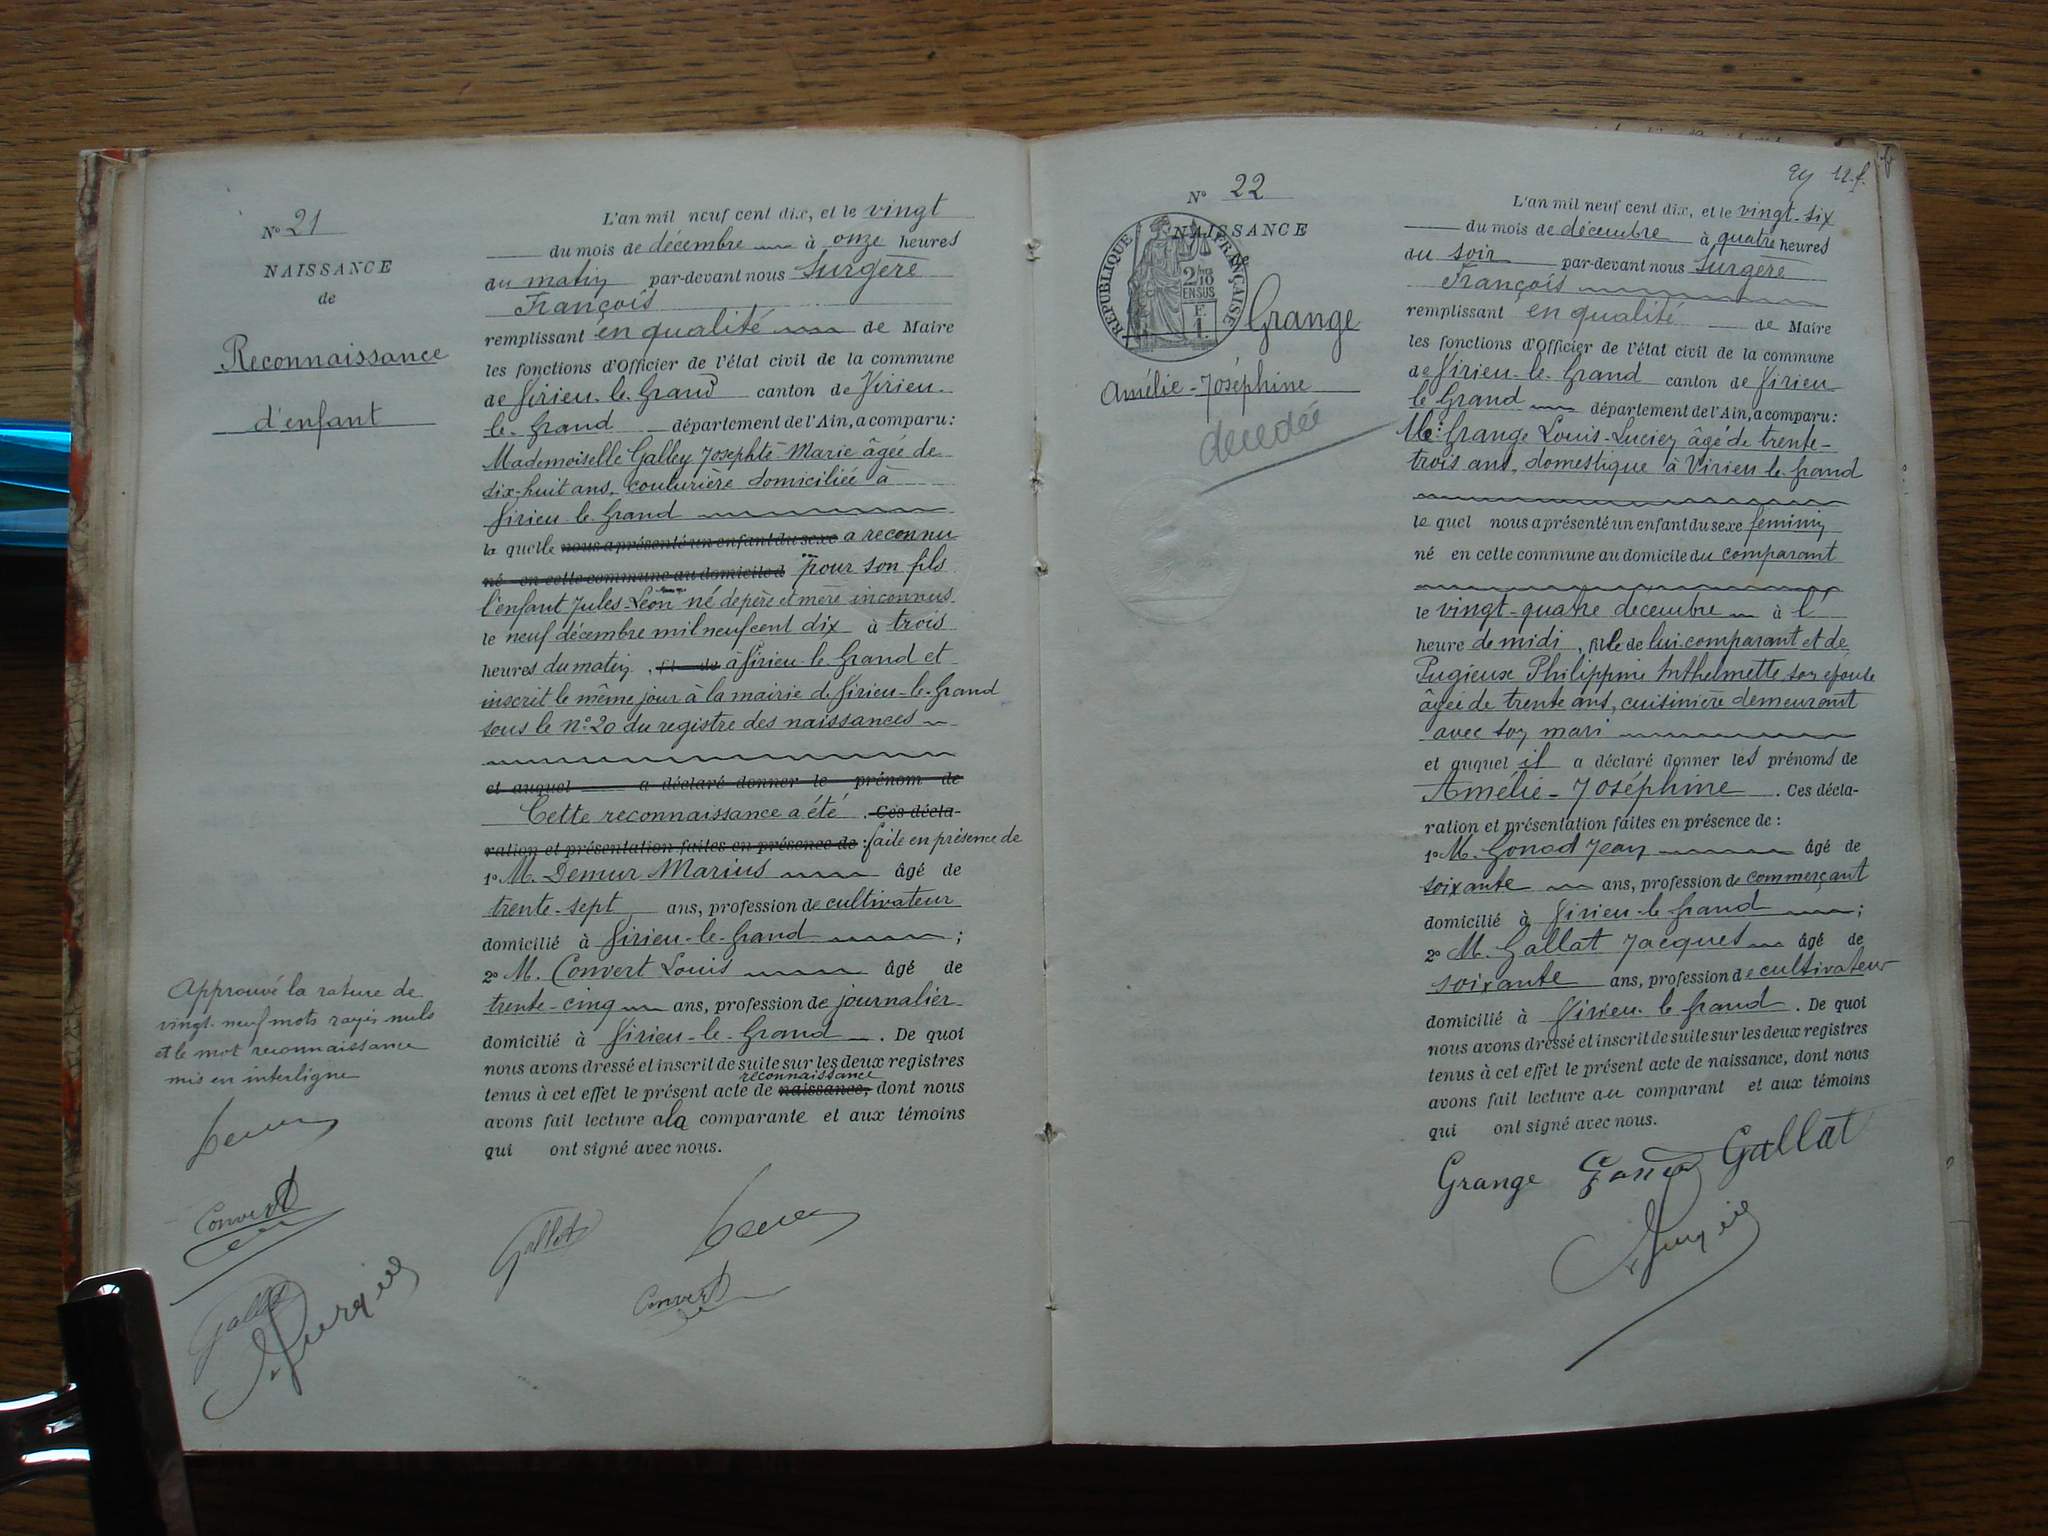 N° 21
NAISSANCE
de
Reconnaissance
d'enfant
L'an mil neuf cent dix, et le vingt
du mois de décembre à onze heures
du matin par-devant nous Surgère
François
remplissant en qualité de Maire
les fonctions d'Officier de l'état civil de la commune
de Virieu-le-Grand canton de Virieu-
le-Grand département de l'Ain, a comparu :
Mademoiselle Galley Josephte-Marie âgée de
dix-huit ans, couturière domiciliée à
Virieu-le-Grand
la quelle nous a présenté un enfant du sexe a reconnu
né en cette commune au domicile d pour son fils
l'enfant Jules-Léon né de père et mère inconnus
le neuf décembre mil neuf cent dix à trois
heures du matin, à Virieu-le-Grand et
inscrit le même jour à la mairie de Virieu-le-Grand
sous le N° 20 du registre des naissances
et auquel a déclaré donner le prénom de
Cette reconnaissance a été . Ces décla-
ration et présentation faites en présence de : faite en présence de
1° M. Demur Marius âgé de
trente-sept ans, profession de cultivateur
domicilié à Virieu-le-Grand ;
2° M. Convert Louis âgé de
trente-cinq ans, profession de journalier
domicilié à Virieu-le-Grand . De quoi
nous avons dressé et inscrit de suite sur les deux registres
reconnaissance
tenus à cet effet le présent acte de naissance, dont nous
avons fait lecture à la comparante et aux témoins
qui ont signé avec nous.
Approuvé la rature de
vingt-neuf mots rayés nuls
et le mot reconnaissance
mis en interligne
Convert
Convert
N° 22
NAISSANCE
de
RÉPUBLIQUE FRANÇAISE
2/10
EN SUS
Grange
Amélie-Joséphine
décédée
L'an mil neuf cent dix, et le vingt-six
du mois de décembre à quatre heures
du soir par-devant nous Surgère
François
remplissant en qualité de Maire
les fonctions d'Officier de l'état civil de la commune
de Virieu-le-Grand canton de Virieu-
le Grand département de l'Ain, a comparu :
Mr Grange Louis-Lucien âgé de trente-
trois ans, domestique à Virieu-le-Grand
le quel nous a présenté un enfant du sexe féminin
né en cette commune au domicile du comparant
le vingt-quatre décembre à l'
heure de midi, fille de lui comparant et de
Pugieux Philippine Anthelmette son épouse
âgée de trente ans, cuisinière demeurant
avec son mari
et auquel il a déclaré donner les prénoms de
Amélie-Joséphine . Ces décla-
ration et présentation faites en présence de :
1° M. Gonod Jean âgé de
soixante ans, profession de commerçant
domicilié à Virieu-le-Grand ;
2° M. Gallat Jacques âgé de
soixante ans, profession de cultivateur
domicilié à Virieu-le-Grand . De quoi
nous avons dressé et inscrit de suite sur les deux registres
tenus à cet effet le présent acte de naissance, dont nous
avons fait lecture au comparant et aux témoins
qui ont signé avec nous.
Grange Gonod Gallat